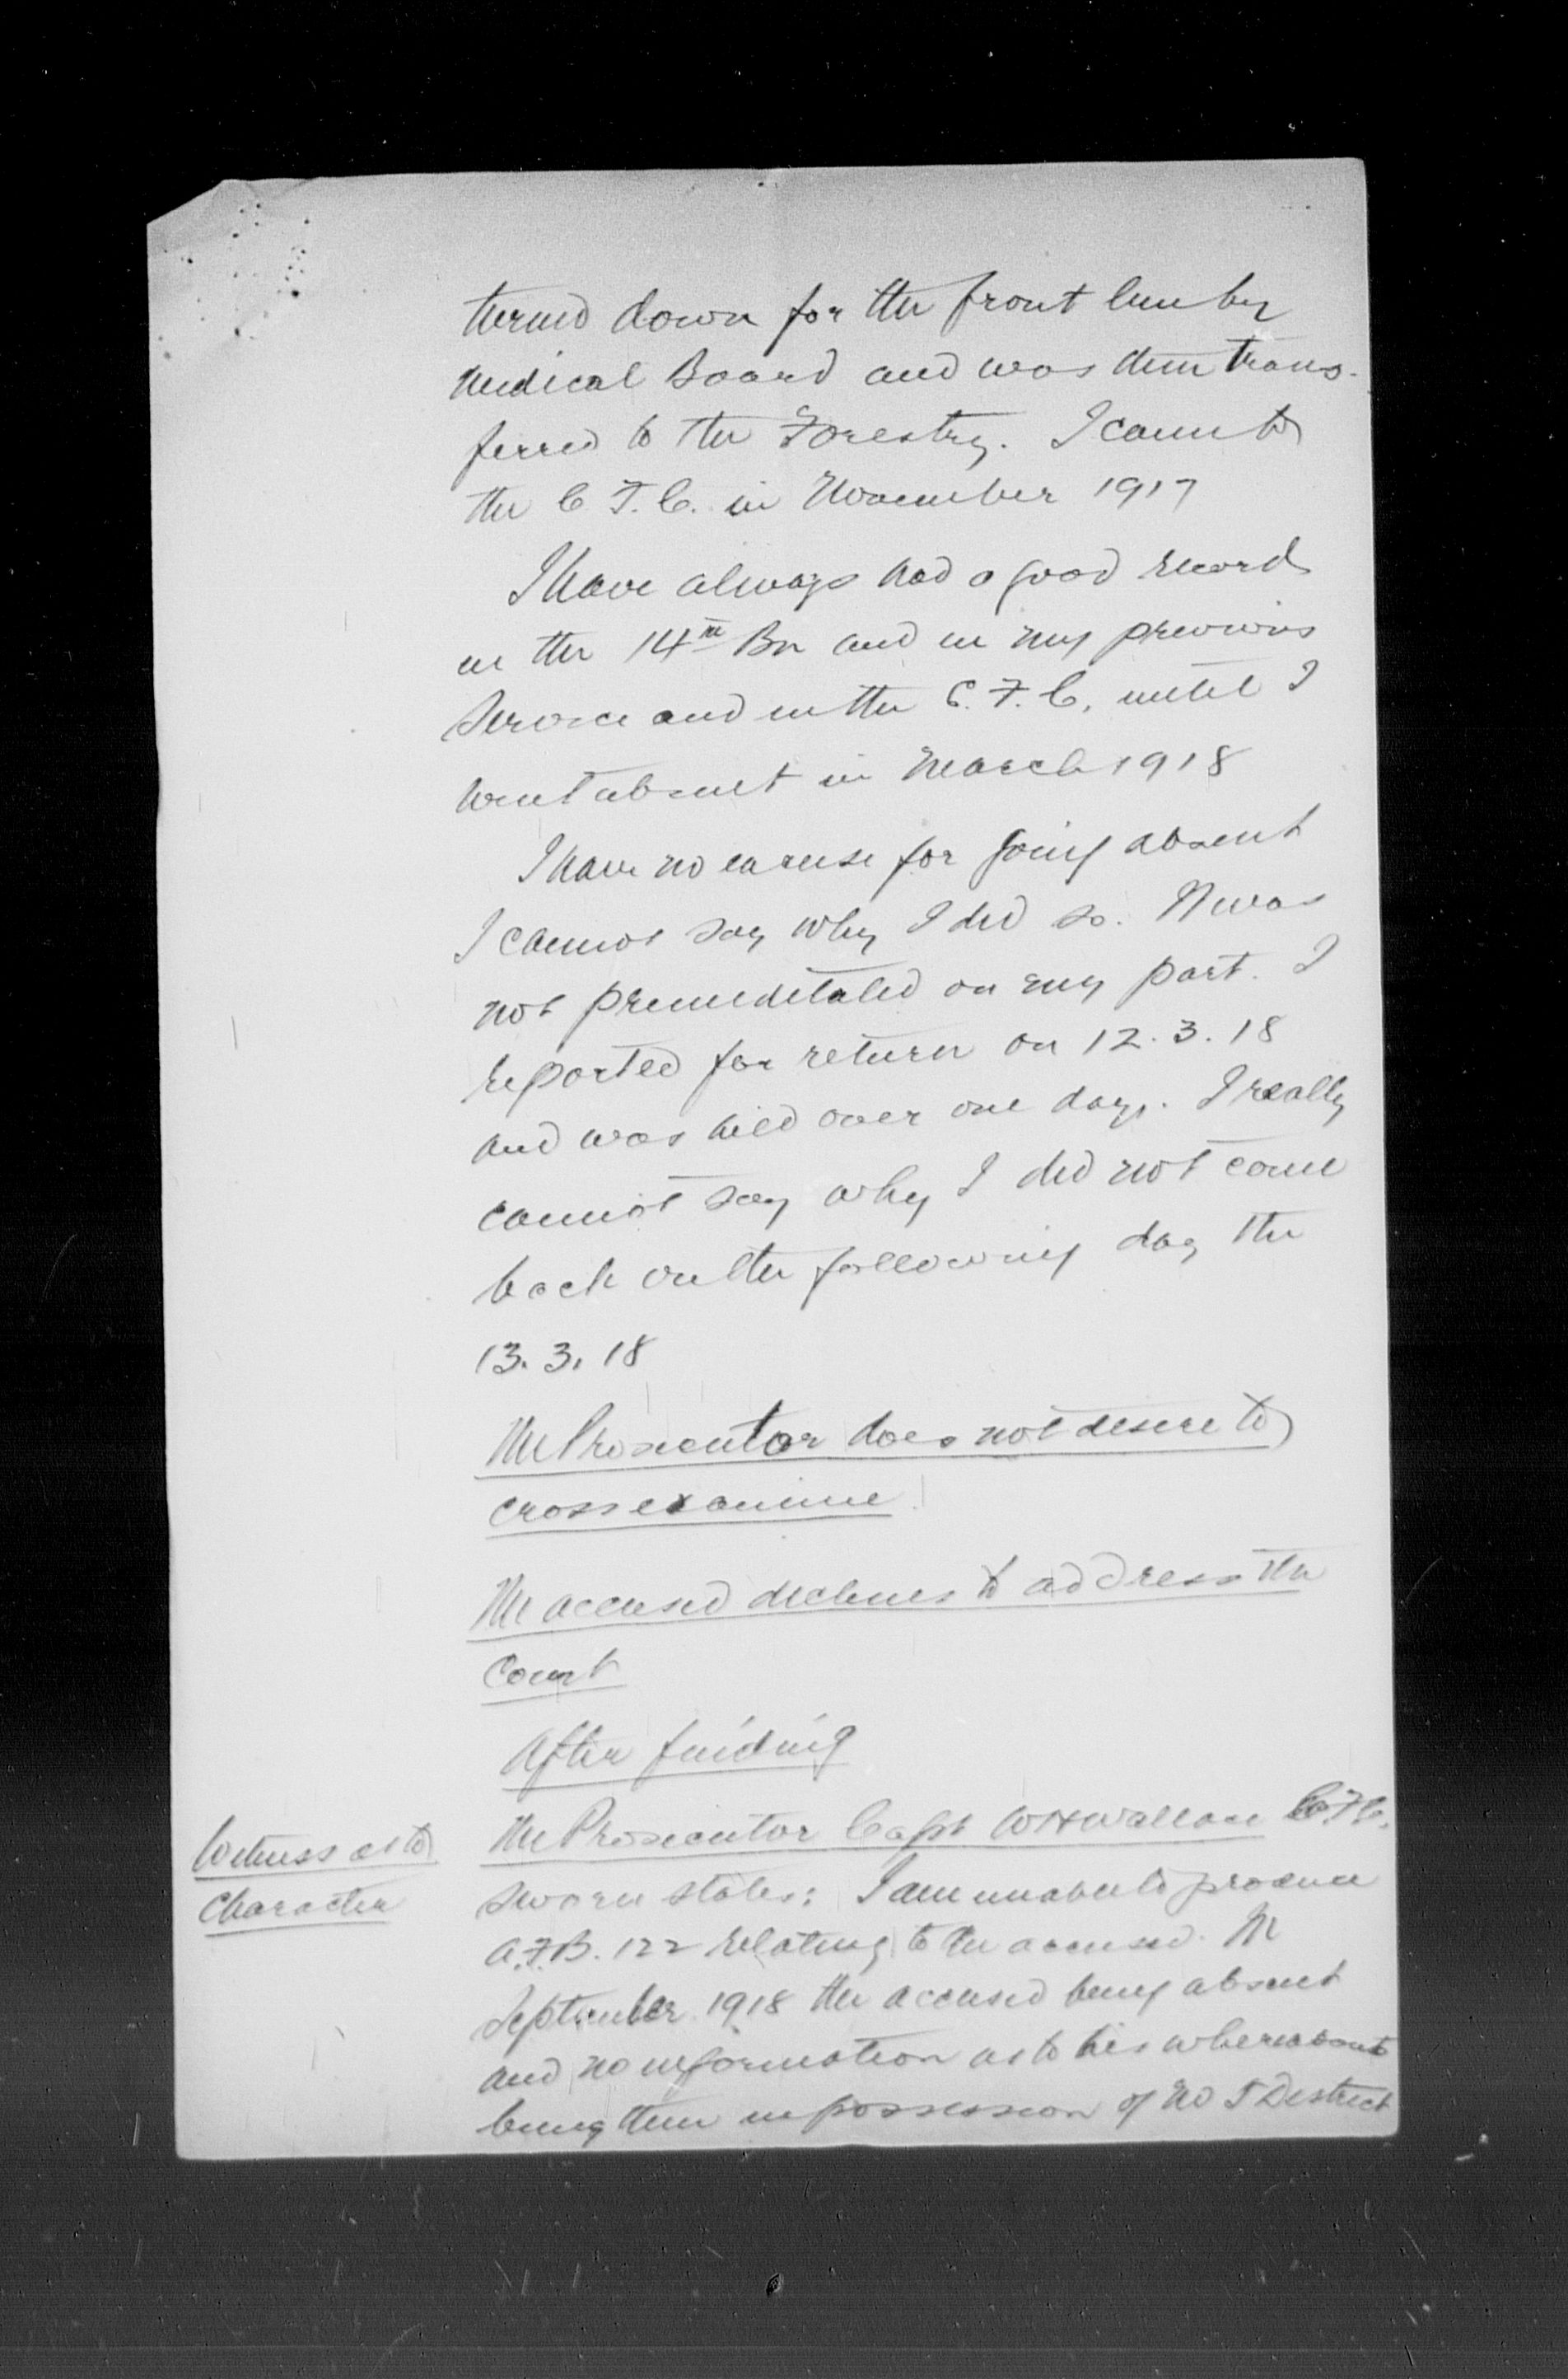 turned down for the front line by
Medical Board and was then trans-
ferred to the Forestry. I came to
the C.F.C. in November 1917
I have always had a good record
in the 14th Bn and in my previous
Service and in the C.F.C. until I
went absent in March 1918
I have no excuse for going absent
I cannot say why I did so. It was
not premeditated on my part. I
reported for return on 12.3.18
and was held over one day. I really
cannot say why I did not come
back on the following day the
13.3.18
The Prosecutor does not desire to
cross examine.
The accused declines to address the
Court
After finding
Witness as to
Character
The Prosecutor Capt W H Wallace C.F.C.
sworn states: I am unable to produce
A.F.B. 122 relating to the accused. In
September 1918 the accused being absent
and no information as to his whereabouts
being then in possession of No 5 District